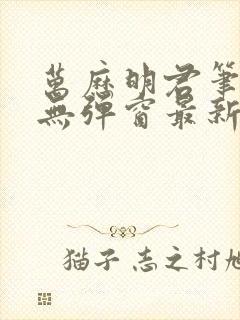 萬歷明君筆
無彈窗最新
猫子 志之村旭